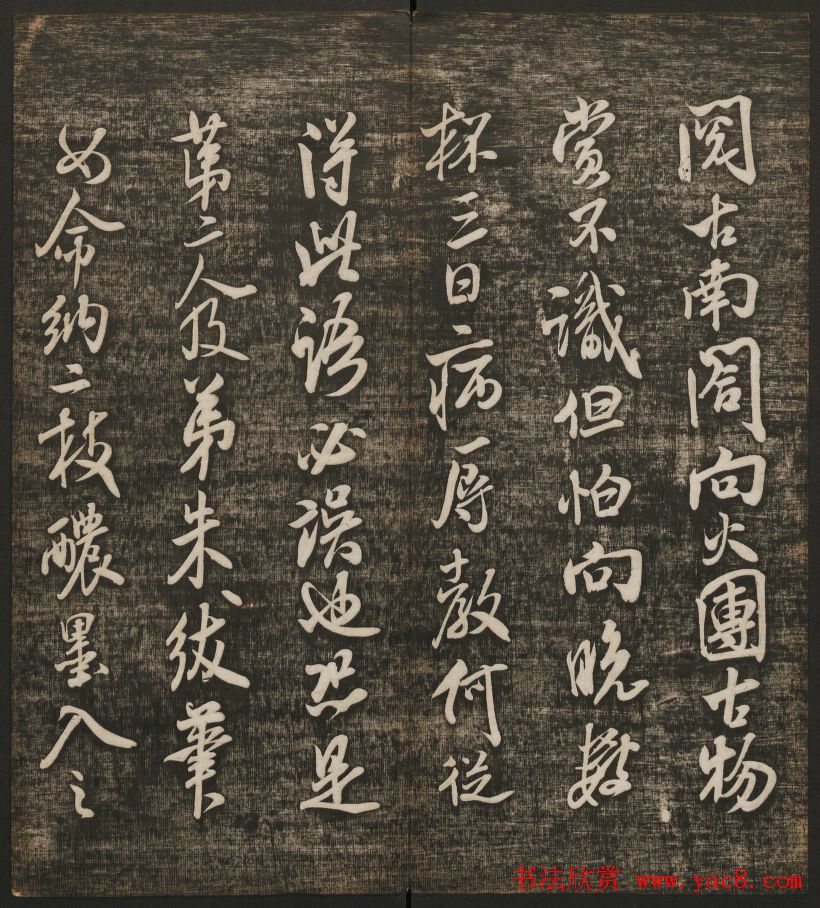 閱古南閣向火團古物
賞不識但怕向晚數
杯三日病辱教何從
得此語必誤也恐是
苐二人及弟朱紱筆
如命納二枝醲墨入之
书法欣赏 www.yac8.com